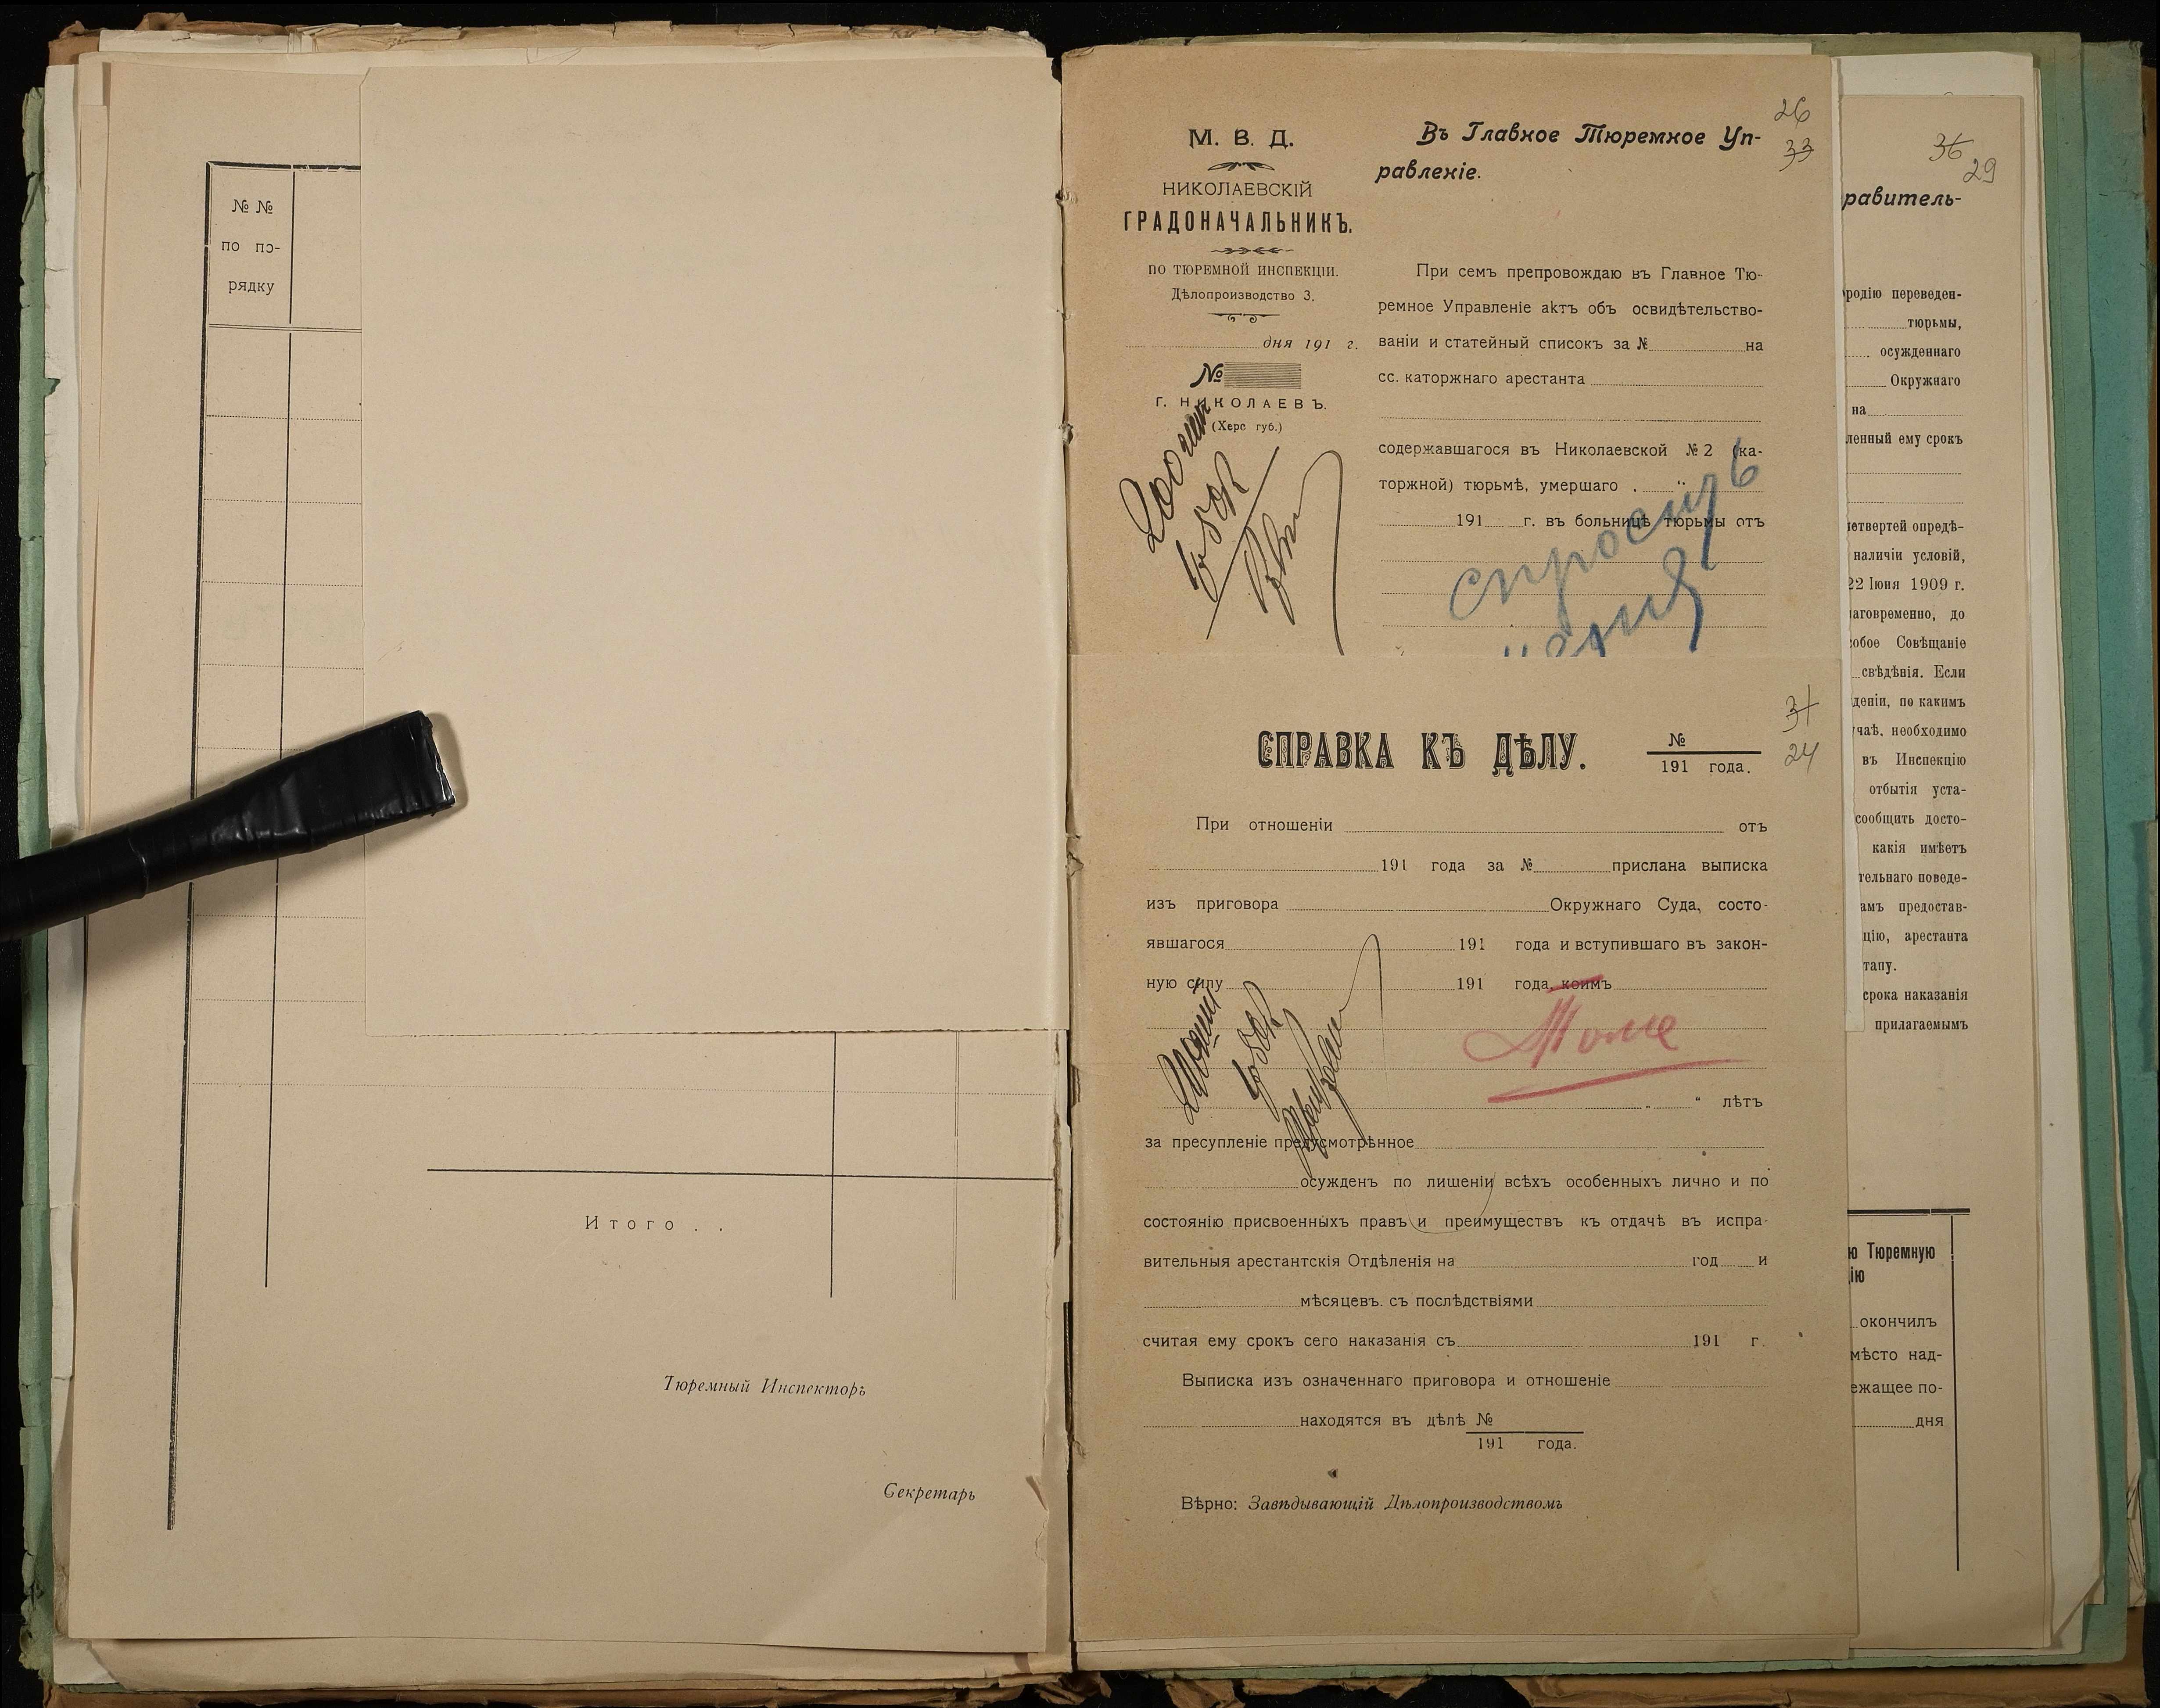 № №
по по-
рядку
Итого . .
Тюремный Инспекторъ
Секретарь
26
33
М. В. Д.
НИКОЛАЕВСКІЙ
ГРАДОНАЧАЛЬНИКЪ.
ПО ТЮРЕМНОЙ ИНСПЕКЦІИ.
Дѣлопроизводство 3.
дня 191 г.
№
Г. НИКОЛАЕВЪ.
(Херс губ.)
200 шт
Въ Главное Тюремное Уп-
равленіе.
При семъ препровождаю въ Главное Тю-
ремное Управленіе актъ объ освидѣтельство-
ваніи и статейный списокъ за № на
сс. каторжнаго арестанта
содержавшагося въ Николаевской № 2 (ка-
торжной) тюрьмѣ, умершаго . "
191 г. въ больницѣ тюрьмы отъ
спросить
меня
31
24
СПРАВКА КЪ ДѢЛУ.
№
191 года.
При отношеніи отъ
191 года за № прислана выписка
изъ приговора Окружнаго Суда, состо-
явшагося 191 года и вступившаго въ закон-
ную силу 191 года, коимъ
Тоже
" " лѣтъ
за пресупленіе предусмотрѣнное
осужденъ по лишеніи всѣхъ особенныхъ лично и по
состоянію присвоенныхъ правъ и преимуществъ къ отдачѣ въ испра-
вительныя арестантскія Отдѣленія на год и
мѣсяцевъ. съ послѣдствіями
считая ему срокъ сего наказанія съ 191 г.
Выписка изъ означеннаго приговора и отношеніе
находятся въ дѣлѣ №
191 года.
Вѣрно: Завѣдывающій Дѣлопроизводствомъ
36
29
равитель-
родію переведен-
тюрьмы,
осужденнаго
Окружнаго
на
ленный ему срокъ
четвертей опредѣ-
наличіи условій,
22 Іюня 1909 г.
лаговременно, до
собое Совѣщаніе
свѣдѣнія. Если
деніи, по какимъ
учаѣ, необходимо
въ Инспекцію
отбытія уста-
сообщить досто-
какія имѣетъ
тельнаго поведе-
амъ предостав-
цію, арестанта
тапу.
срока наказанія
прилагаемымъ
ю Тюремную
цію
окончилъ
мѣсто над-
ежащее по-
дня